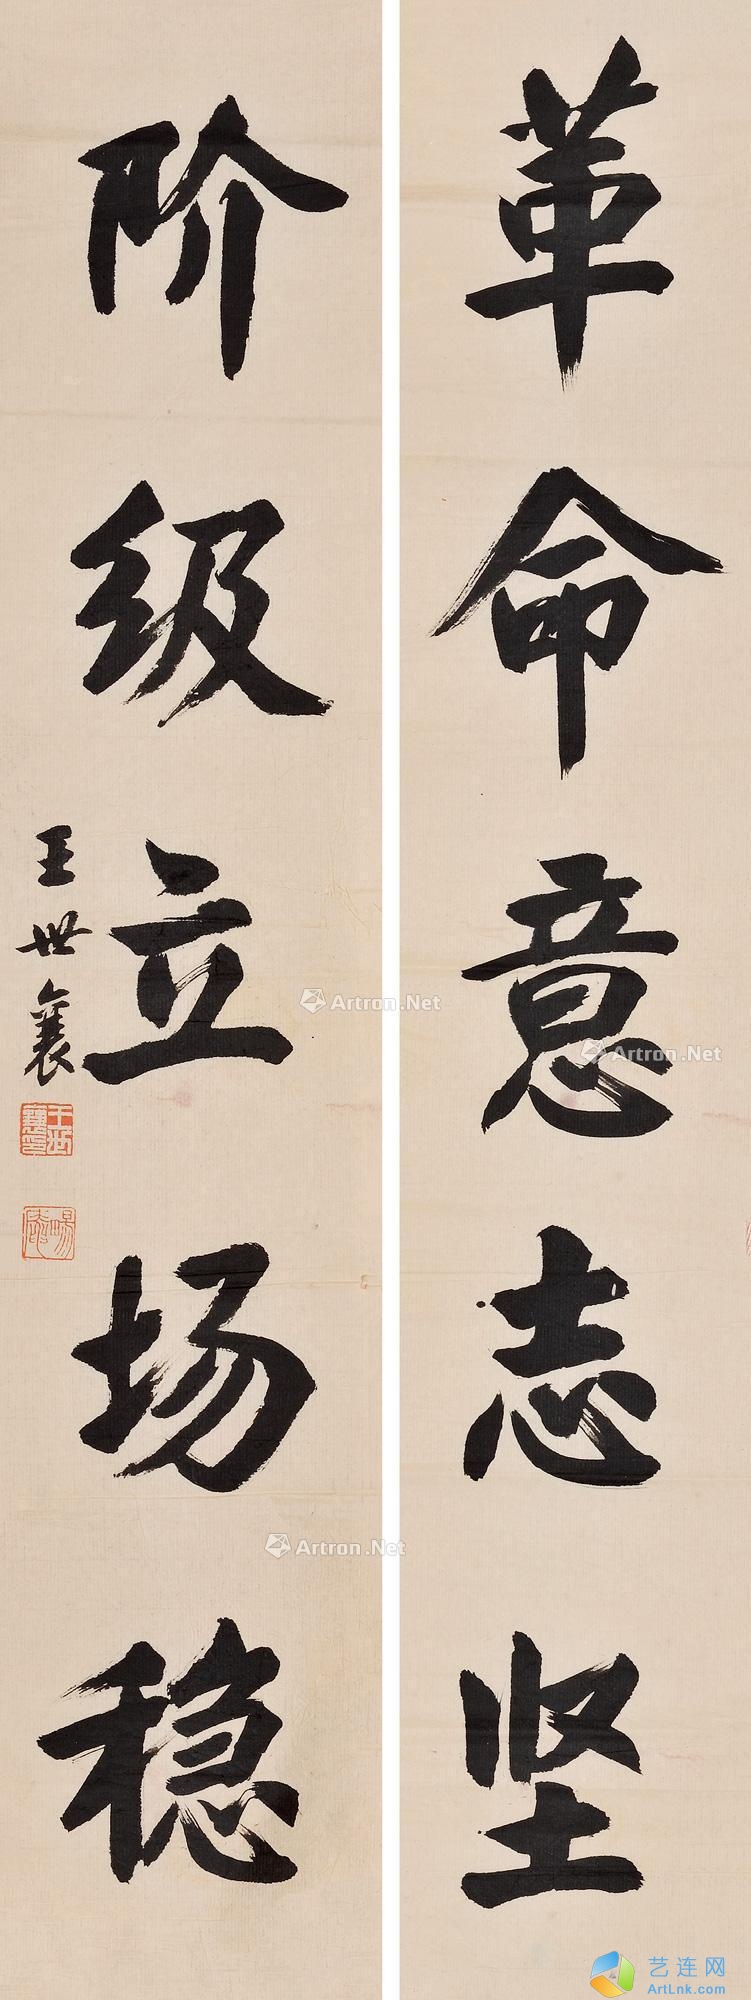 革命意志坚
阶级立场稳
王世襄
王世襄印
畅安
Artron.Net
Artron.Net
Artron.Net
艺连网
ArtLnk.com